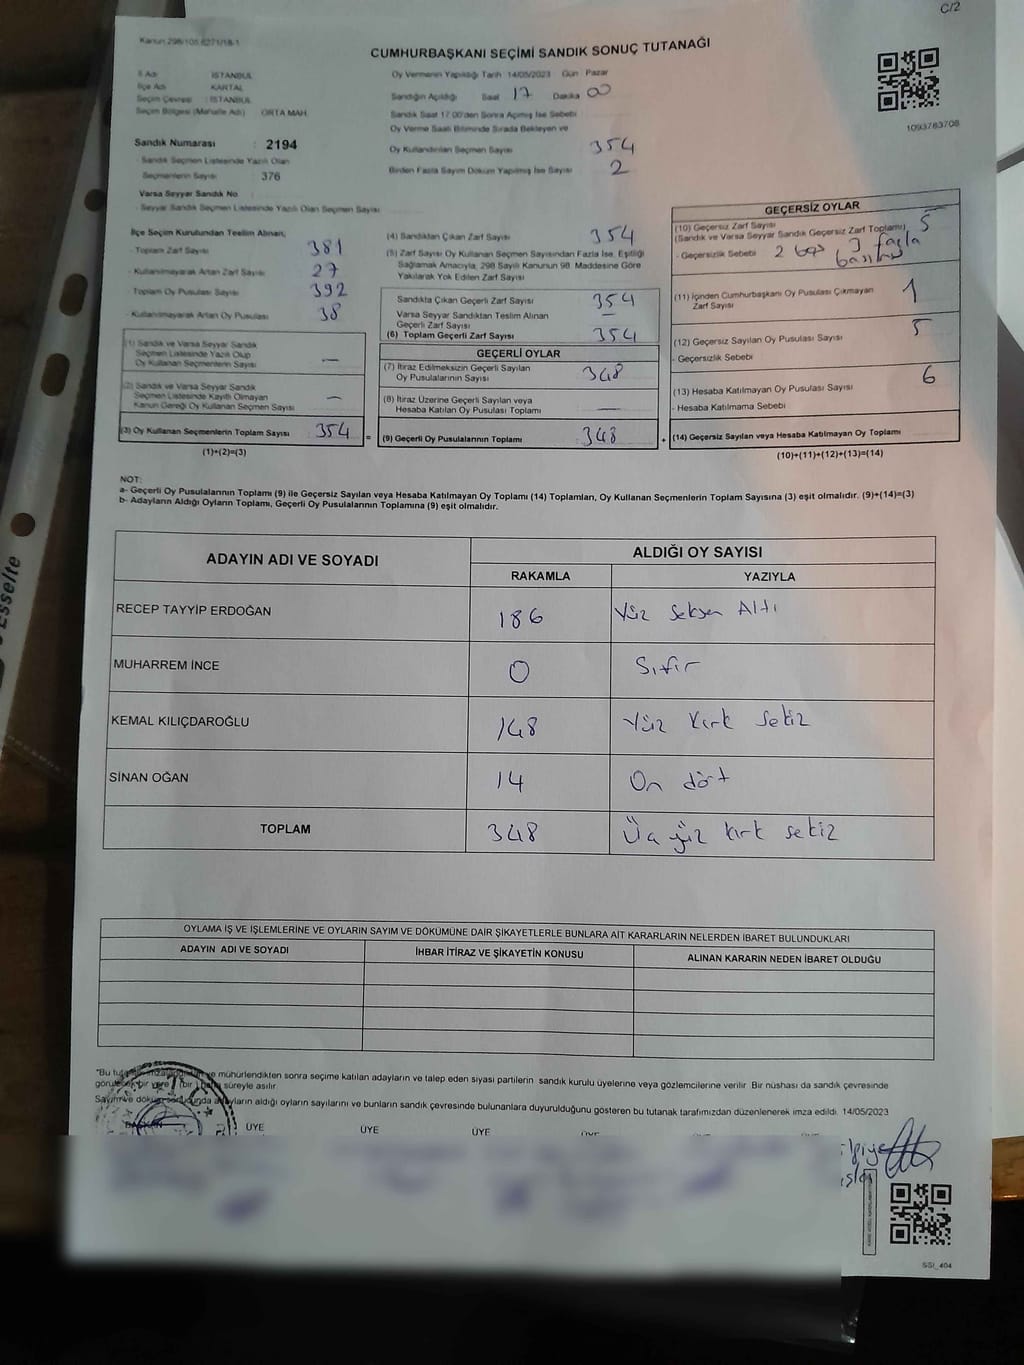 C/2
Kanun 298/105 6271/18-1
CUMHURBAŞKANI SEÇİMİ SANDIK SONUÇ TUTANAĞI
İl Adı : İSTANBUL
İlçe Adı : KARTAL
Seçim Çevresi : İSTANBUL
Seçim Bölgesi (Mahalle Adı) : ORTA MAH
Sandık Numarası : 2194
Sandık Seçmen Listesinde Yazılı Olan
Seçmenlerin Sayısı : 376
Varsa Seyyar Sandık No
- Seyyar Sandık Seçmen Listesinde Yazılı Olan Seçmen Sayısı
Oy Vermenin Yapıldığı Tarih 14/05/2023 Gün Pazar
Sandığın Açıldığı Saat 17 Dakika 00
Sandık Saat 17.00'den Sonra Açılmış İse Sebebi
Oy Verme Saati Bitiminde Sırada Bekleyen ve
Oy Kullandırılan Seçmen Sayısı 354
Birden Fazla Sayım Döküm Yapılmış İse Sayısı 2
1093763708
İlçe Seçim Kurulundan Teslim Alınan;
- Toplam Zarf Sayısı 381
- Kullanılmayarak Artan Zarf Sayısı 27
Toplam Oy Pusulası Sayısı 392
- Kullanılmayarak Artan Oy Pusulası 38
(1) Sandık ve Varsa Seyyar Sandık
Seçmen Listesinde Yazılı Olup
Oy Kullanan Seçmenlerin Sayısı —
(2) Sandık ve Varsa Seyyar Sandık
Seçmen Listesinde Kayıtlı Olmayan
Kanun Gereği Oy Kullanan Seçmen Sayısı —
(3) Oy Kullanan Seçmenlerin Toplam Sayısı : 354 =
(1)+(2)=(3)
(4) Sandıktan Çıkan Zarf Sayısı 354
(5) Zarf Sayısı Oy Kullanan Seçmen Sayısından Fazla İse, Eşitliği
Sağlamak Amacıyla, 298 Sayılı Kanunun 98. Maddesine Göre
Yakılarak Yok Edilen Zarf Sayısı
Sandıkta Çıkan Geçerli Zarf Sayısı 354
Varsa Seyyar Sandıktan Teslim Alınan
Geçerli Zarf Sayısı —
(6) Toplam Geçerli Zarf Sayısı 354
GEÇERLİ OYLAR
(7) İtiraz Edilmeksizin Geçerli Sayılan
Oy Pusulalarının Sayısı 348
(8) İtiraz Üzerine Geçerli Sayılan veya
Hesaba Katılan Oy Pusulası Toplamı —
(9) Geçerli Oy Pusulalarının Toplamı : 348 +
GEÇERSİZ OYLAR
(10) Geçersiz Zarf Sayısı
(Sandık ve Varsa Seyyar Sandık Geçersiz Zarf Toplamı) 5
- Geçersizlik Sebebi 2 boş 3 fazla
(11) İçinden Cumhurbaşkanı Oy Pusulası Çıkmayan
Zarf Sayısı 1
(12) Geçersiz Sayılan Oy Pusulası Sayısı 5
- Geçersizlik Sebebi
(13) Hesaba Katılmayan Oy Pusulası Sayısı 6
- Hesaba Katılmama Sebebi
(14) Geçersiz Sayılan veya Hesaba Katılmayan Oy Toplamı
(10)+(11)+(12)+(13)=(14)
NOT:
a- Geçerli Oy Pusulalarının Toplamı (9) ile Geçersiz Sayılan veya Hesaba Katılmayan Oy Toplamı (14) Toplamları, Oy Kullanan Seçmenlerin Toplam Sayısına (3) eşit olmalıdır. (9)+(14)=(3)
b- Adayların Aldığı Oyların Toplamı, Geçerli Oy Pusulalarının Toplamına (9) eşit olmalıdır.
ADAYIN ADI VE SOYADI
ALDIĞI OY SAYISI
RAKAMLA YAZIYLA
RECEP TAYYİP ERDOĞAN 186 Yüz seksen Altı
MUHARREM İNCE 0 Sıfır
KEMAL KILIÇDAROĞLU 148 Yüz Kırk Sekiz
SİNAN OĞAN 14 On dört
TOPLAM 348 Üç yüz kırk sekiz
OYLAMA İŞ VE İŞLEMLERİNE VE OYLARIN SAYIM VE DÖKÜMÜNE DAİR ŞİKAYETLERLE BUNLARA AİT KARARLARIN NELERDEN İBARET BULUNDUKLARI
ADAYIN ADI VE SOYADI İHBAR İTİRAZ VE ŞİKAYETİN KONUSU ALINAN KARARIN NEDEN İBARET OLDUĞU
mühürlendikten sonra seçime katılan adayların ve talep eden siyasi partilerin sandık kurulu üyelerine veya gözlemcilerine verilir. Bir nüshası da sandık çevresinde
süreyle asılır.
aldığı oyların sayılarını ve bunların sandık çevresinde bulunanlara duyurulduğunu gösteren bu tutanak tarafımızdan düzenlenerek imza edildi. 14/05/2023
ÜYE ÜYE ÜYE
SSI_404
Esselte